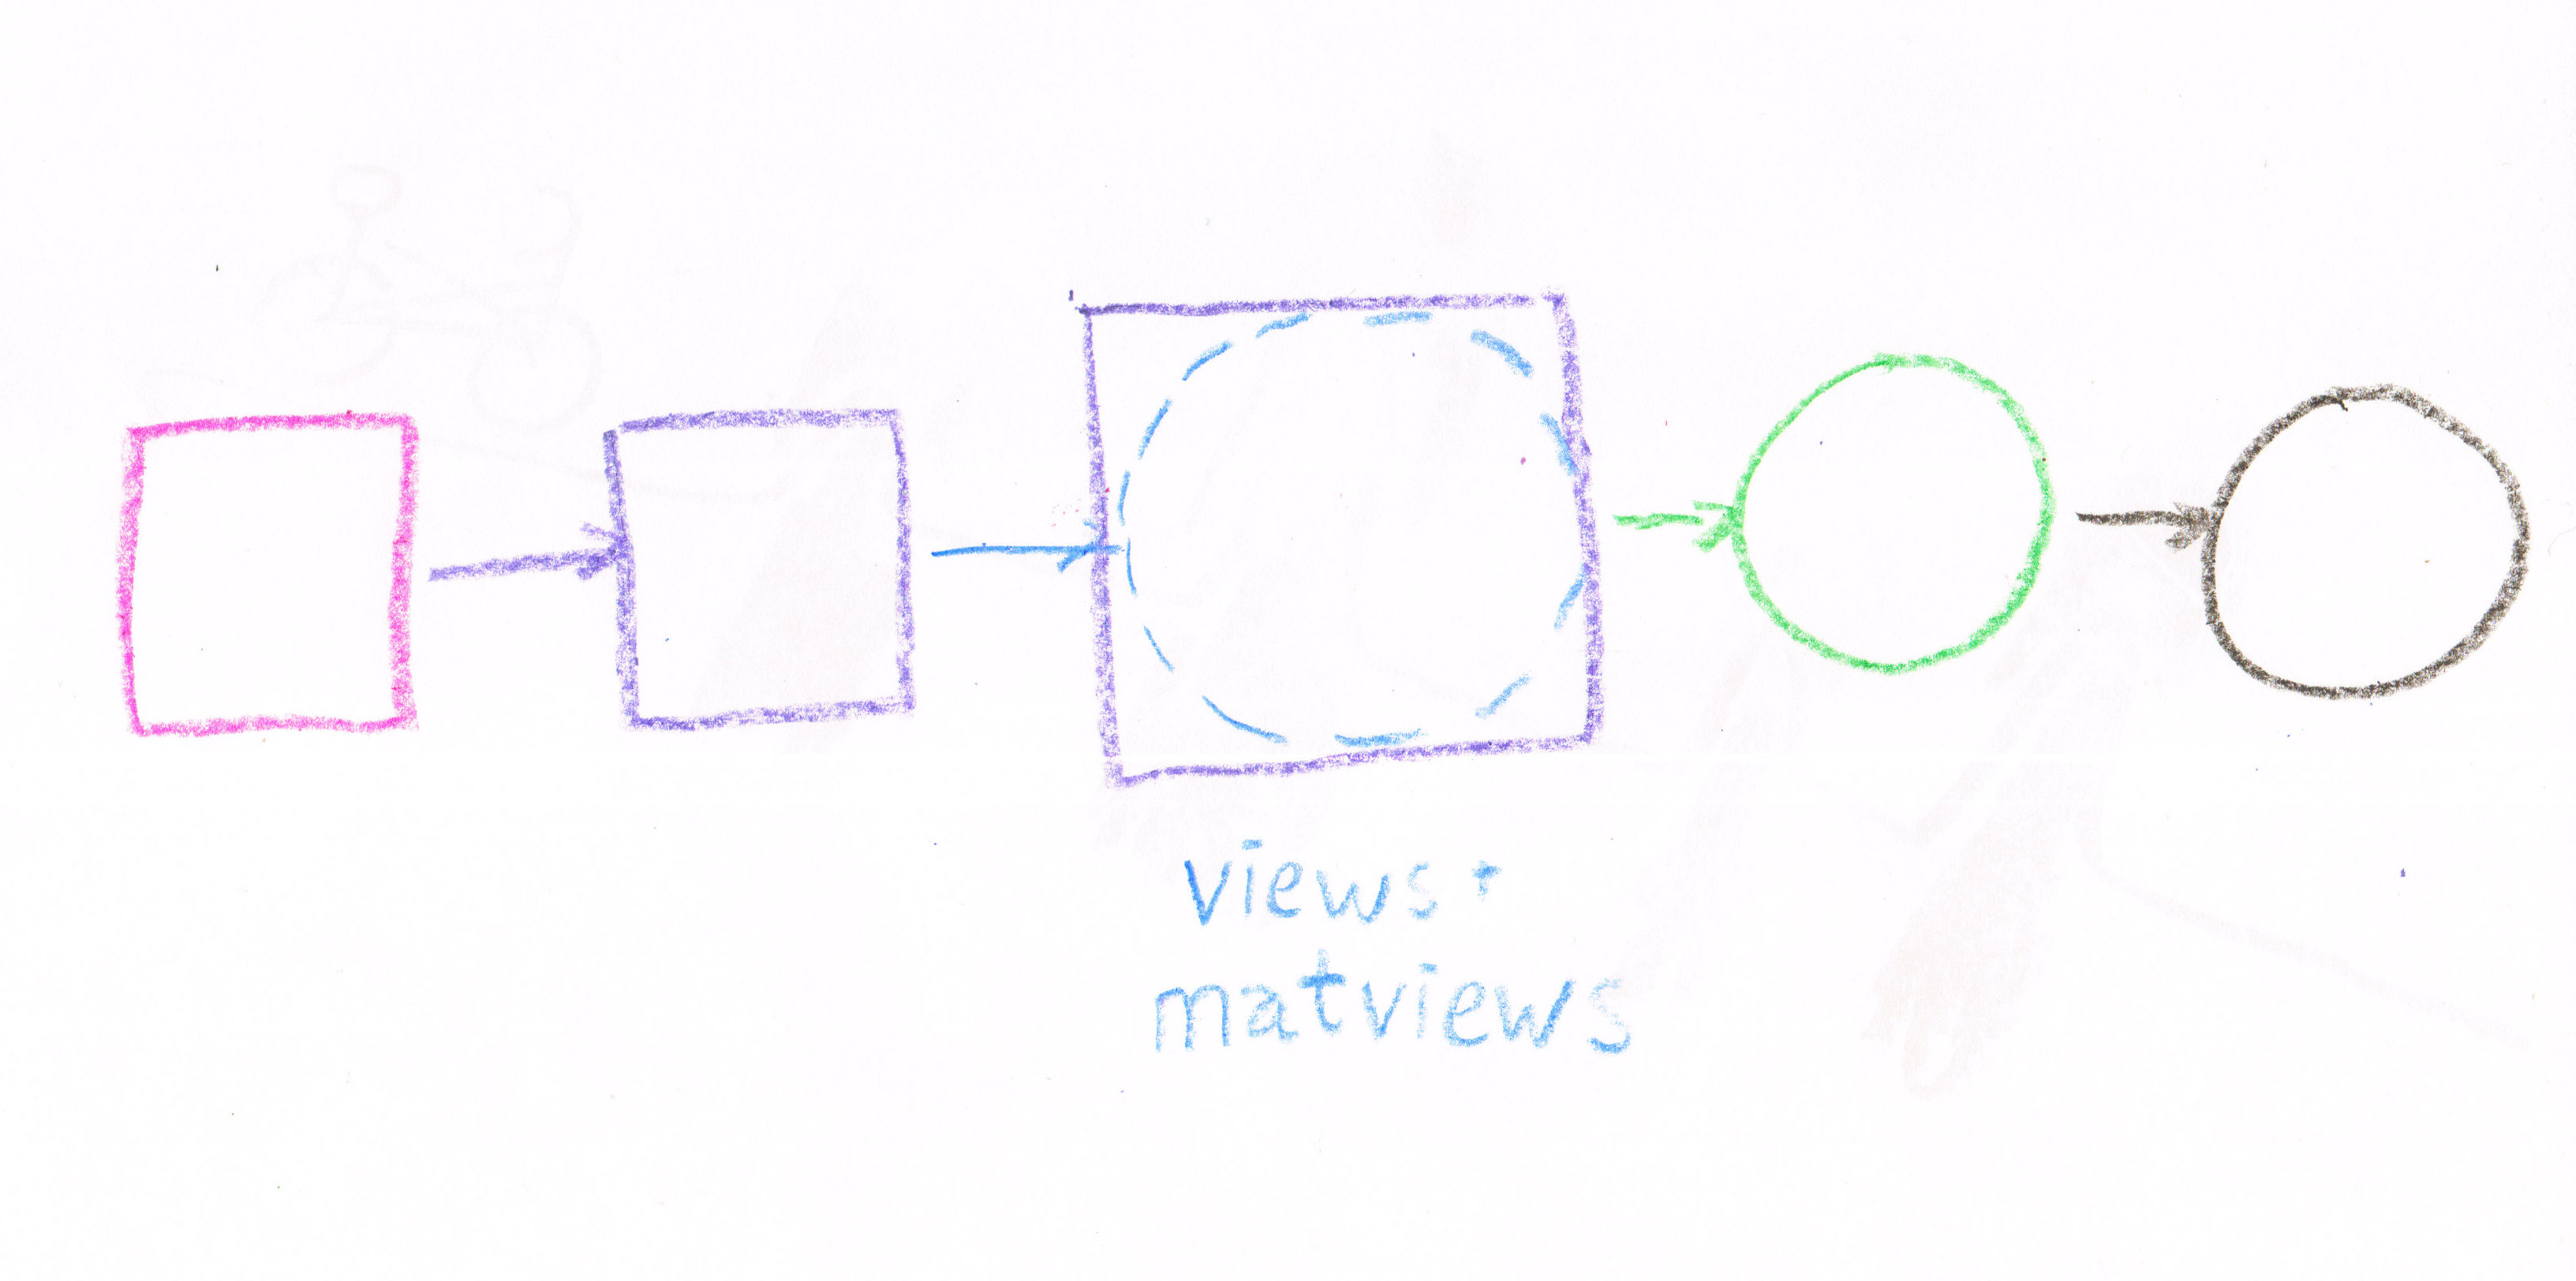 views +
matviews